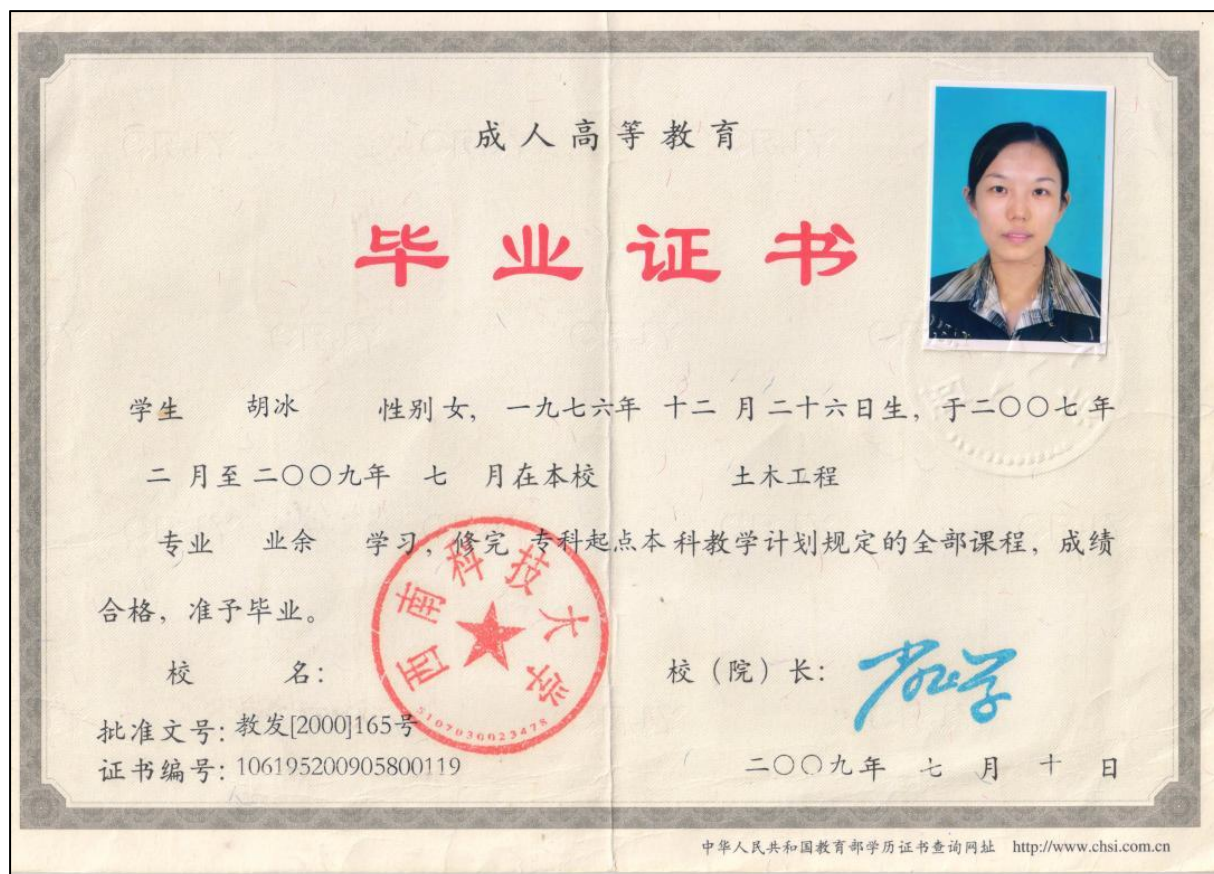 成人高等教育
毕业证书
学生 胡冰 性别 女, 一九七六年 十二 月 二十六日生, 于二〇〇七年
二 月至 二〇〇九年 七 月在本校 土木工程
专业 业余 学习, 修完 专科起点本科教学计划规定的全部课程, 成绩
合格, 准予毕业。
校 名: 西南科技大学 校(院)长:
5107030023478
批准文号: 教发[2000]165号
证书编号: 106195200905800119 二〇〇九年 七 月 十 日
中华人民共和国教育部学历证书查询网址 http://www.chsi.com.cn